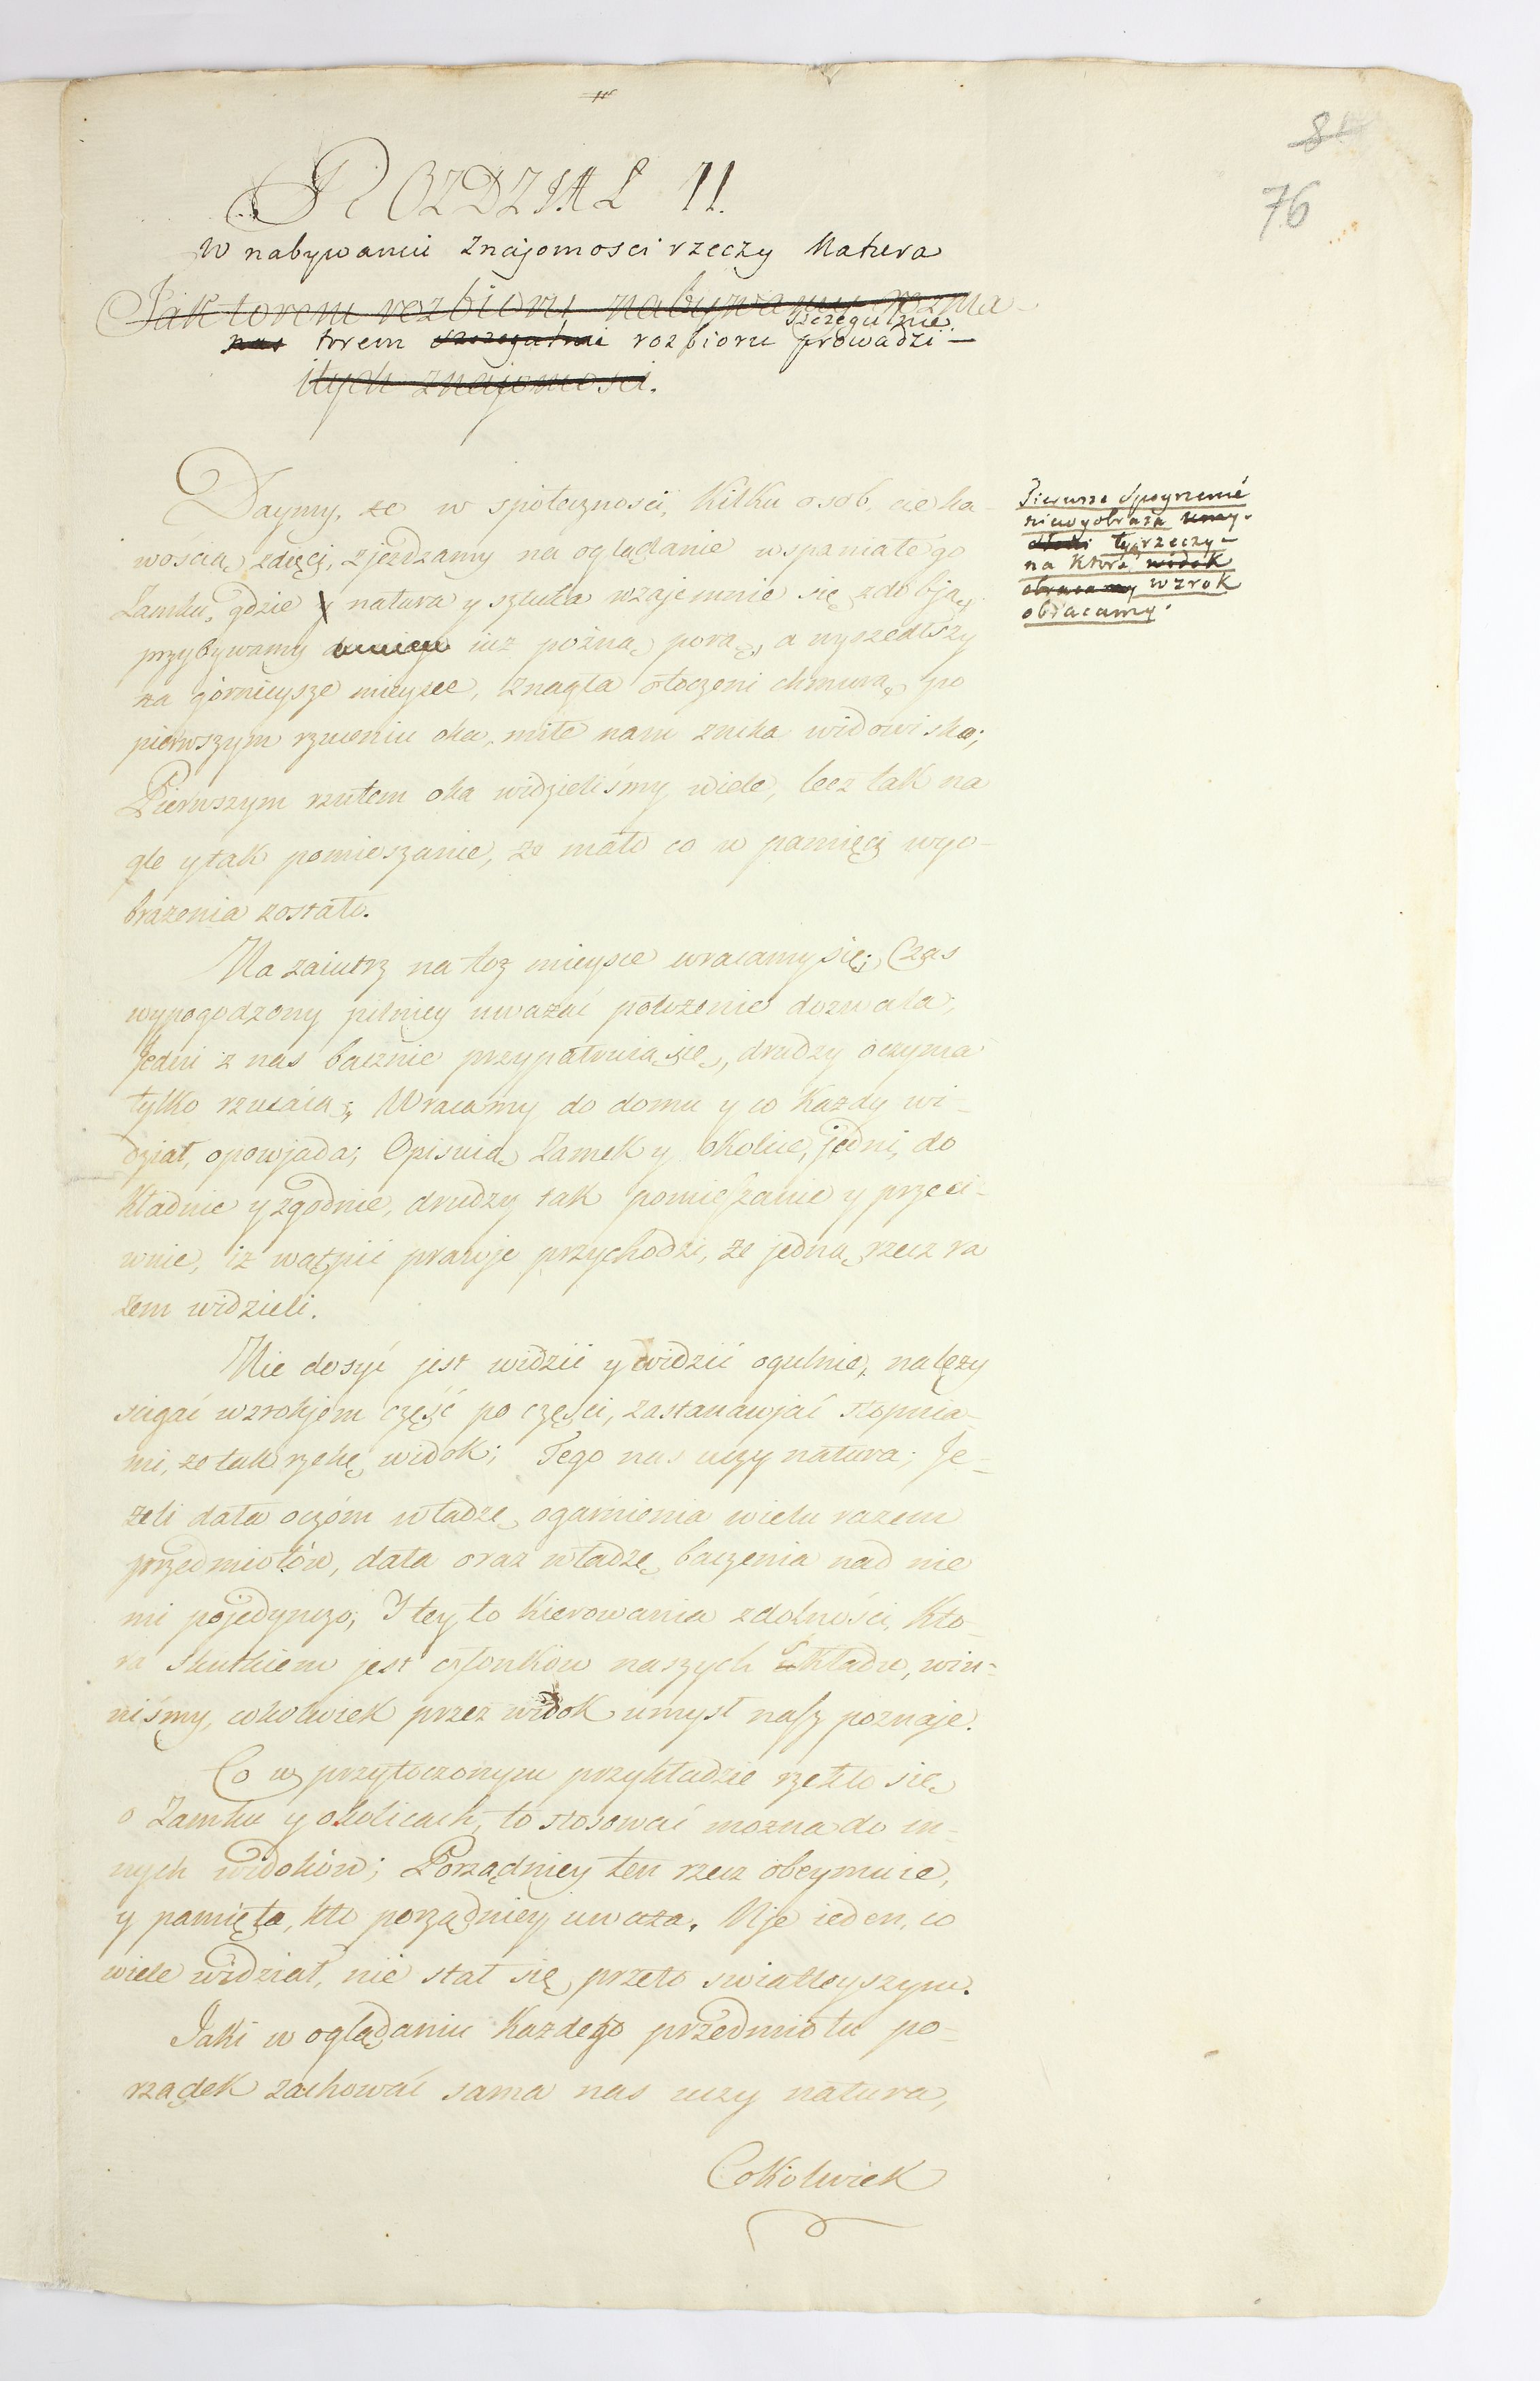 84
76
ROZDZIAŁ II.
W nabywaniu Znajomosci rzeczy Natura
Jak torem rozbioru nabywamy rozma-
szczegulnie
nas torem szczegulnie rozbioru prowadzi —
itych znajomosci.
Daymy, że w społeczności, kilku osób, cieka-
wością zdięci, zjeżdzamy na oglądanie wspaniałego
Zamku, gdzie y natura y sztuka wzajemnie się zdobją,
przybywamy iuż poźną porą, a wyszedłszy
na górnieysze mieysce, znagła otoczeni chmurą, po
pierwszym rzuceniu oka, miłe nam znika widowisko;
Pierwszym rzutem oka widzieliśmy wiele, lecz tak na
gle y tak pomieszanie, że mało co w pamięci wyo-
brażenia zostało.
Na zaiutrz na toż mieysce wracamy się; Czas
wypogodzony pilniey uważać położenie dozwala,
Jedni z nas bacznie przypatruią się, drudzy oczyma
tylko rzucaią; Wracamy do domu y co każdy wi-
dział, opowjada; Opisuią Zamek y okolice, jedni, do
kładnie y zgodnie, drudzy tak pomieszanie y przeci-
wnie, iż wątpić prawje przychodzi, że jedną rzecz ra
zem widzieli.
Nie dosyć jest widzić y widzić ogulnie, należy
ścigać wzrokjem część po części, zastanawjać stopnia-
mi, że tak rzekę widok; Tego nas uczy natura; Je-
żeli dała oczóm władzę ogarnienia wielu razem
przedmiotów, dała oraz władzę baczenia nad nie
mi pojedynczo; I tey to kierowania zdolności, kto-
ra skutkiem jest członków naszych składu, win-
niśmy, cokolwiek przez widok umysł nasz poznaje.
Co w przytoczonym przykładzie rzekło się
o Zamku y okolicach, to stosować można do in-
nych widoków; Porządniey ten rzecz obeymuie,
y pamięta, kto porządniey uważa. Nje ieden, co
wiele widział, nie stał się przeto swiatleyszym.
Jaki w oglądaniu każdego przedmiotu po-
rządek zachować sama nas uczy natura,
Cokolwiek
Pierwsze spoyrzenie
niewyobraża umy-
słowi tey rzeczy-
na którą widok
obracamy wzrok
obracamy.